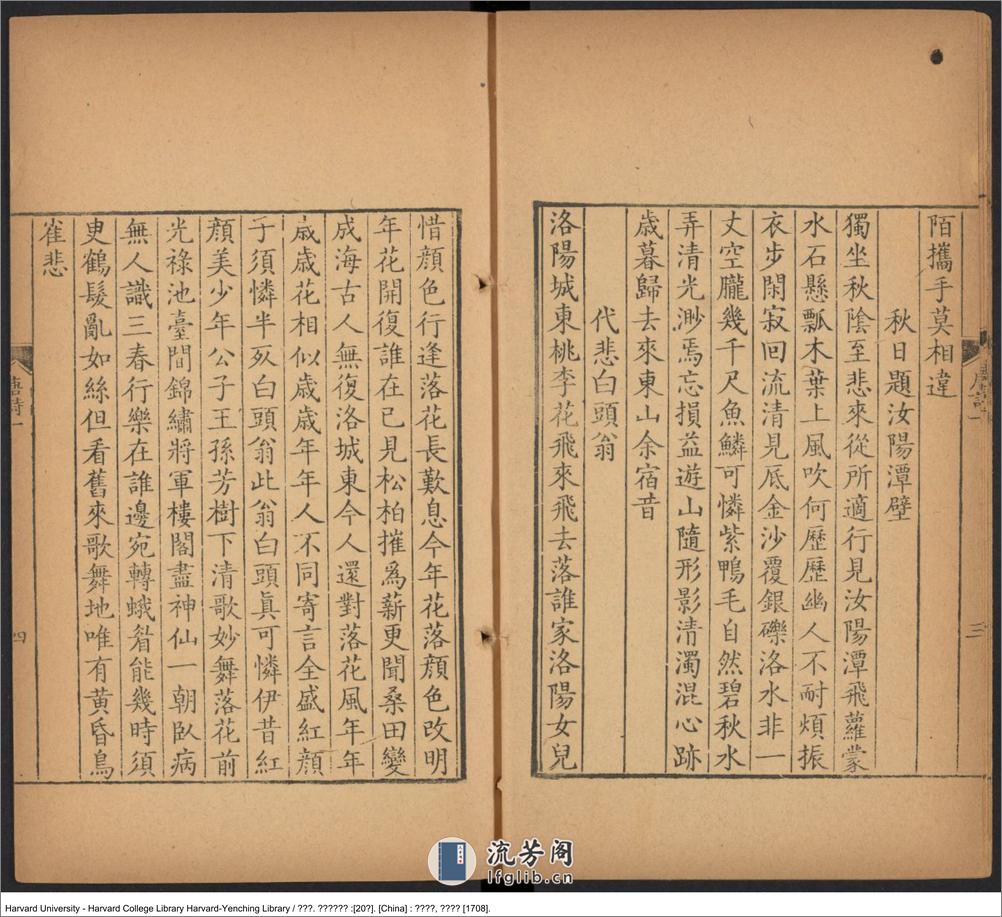 陌攜手莫相違
秋日題汝陽潭壁
獨坐秋陰至悲來從所適行見汝陽潭飛蘿蒙
水石懸瓢木葉上風吹何歷歷幽人不耐煩振
衣步閑寂回流清見底金沙覆銀礫洛水非一
丈空朧幾千尺魚鱗可憐紫鴨毛自然碧秋水
弄清光渺焉忘損益遊山隨形影清濁混心跡
歲暮歸去來東山余宿昔
代悲白頭翁
洛陽城東桃李花飛來飛去落誰家洛陽女兒
三
惜顏色行逢落花長歎息今年花落顏色改明
年花開復誰在已見松柏摧爲薪更聞桑田變
成海古人無復洛城東今人還對落花風年年
歲歲花相似歲歲年年人不同寄言全盛紅顏
子須憐半死白頭翁此翁白頭真可憐伊昔紅
顏美少年公子王孫芳樹下清歌妙舞落花前
光祿池臺間錦繡將軍樓閣盡神仙一朝臥病
無人識三春行樂在誰邊宛轉蛾眉能幾時須
臾鶴髮亂如絲但看舊來歌舞地唯有黃昏鳥
雀悲
唐詩一
四
流芳阁
lfglib.cn
Harvard University - Harvard College Library Harvard-Yenching Library / ???. ?????? :[20?]. [China] : ????, ???? [1708].